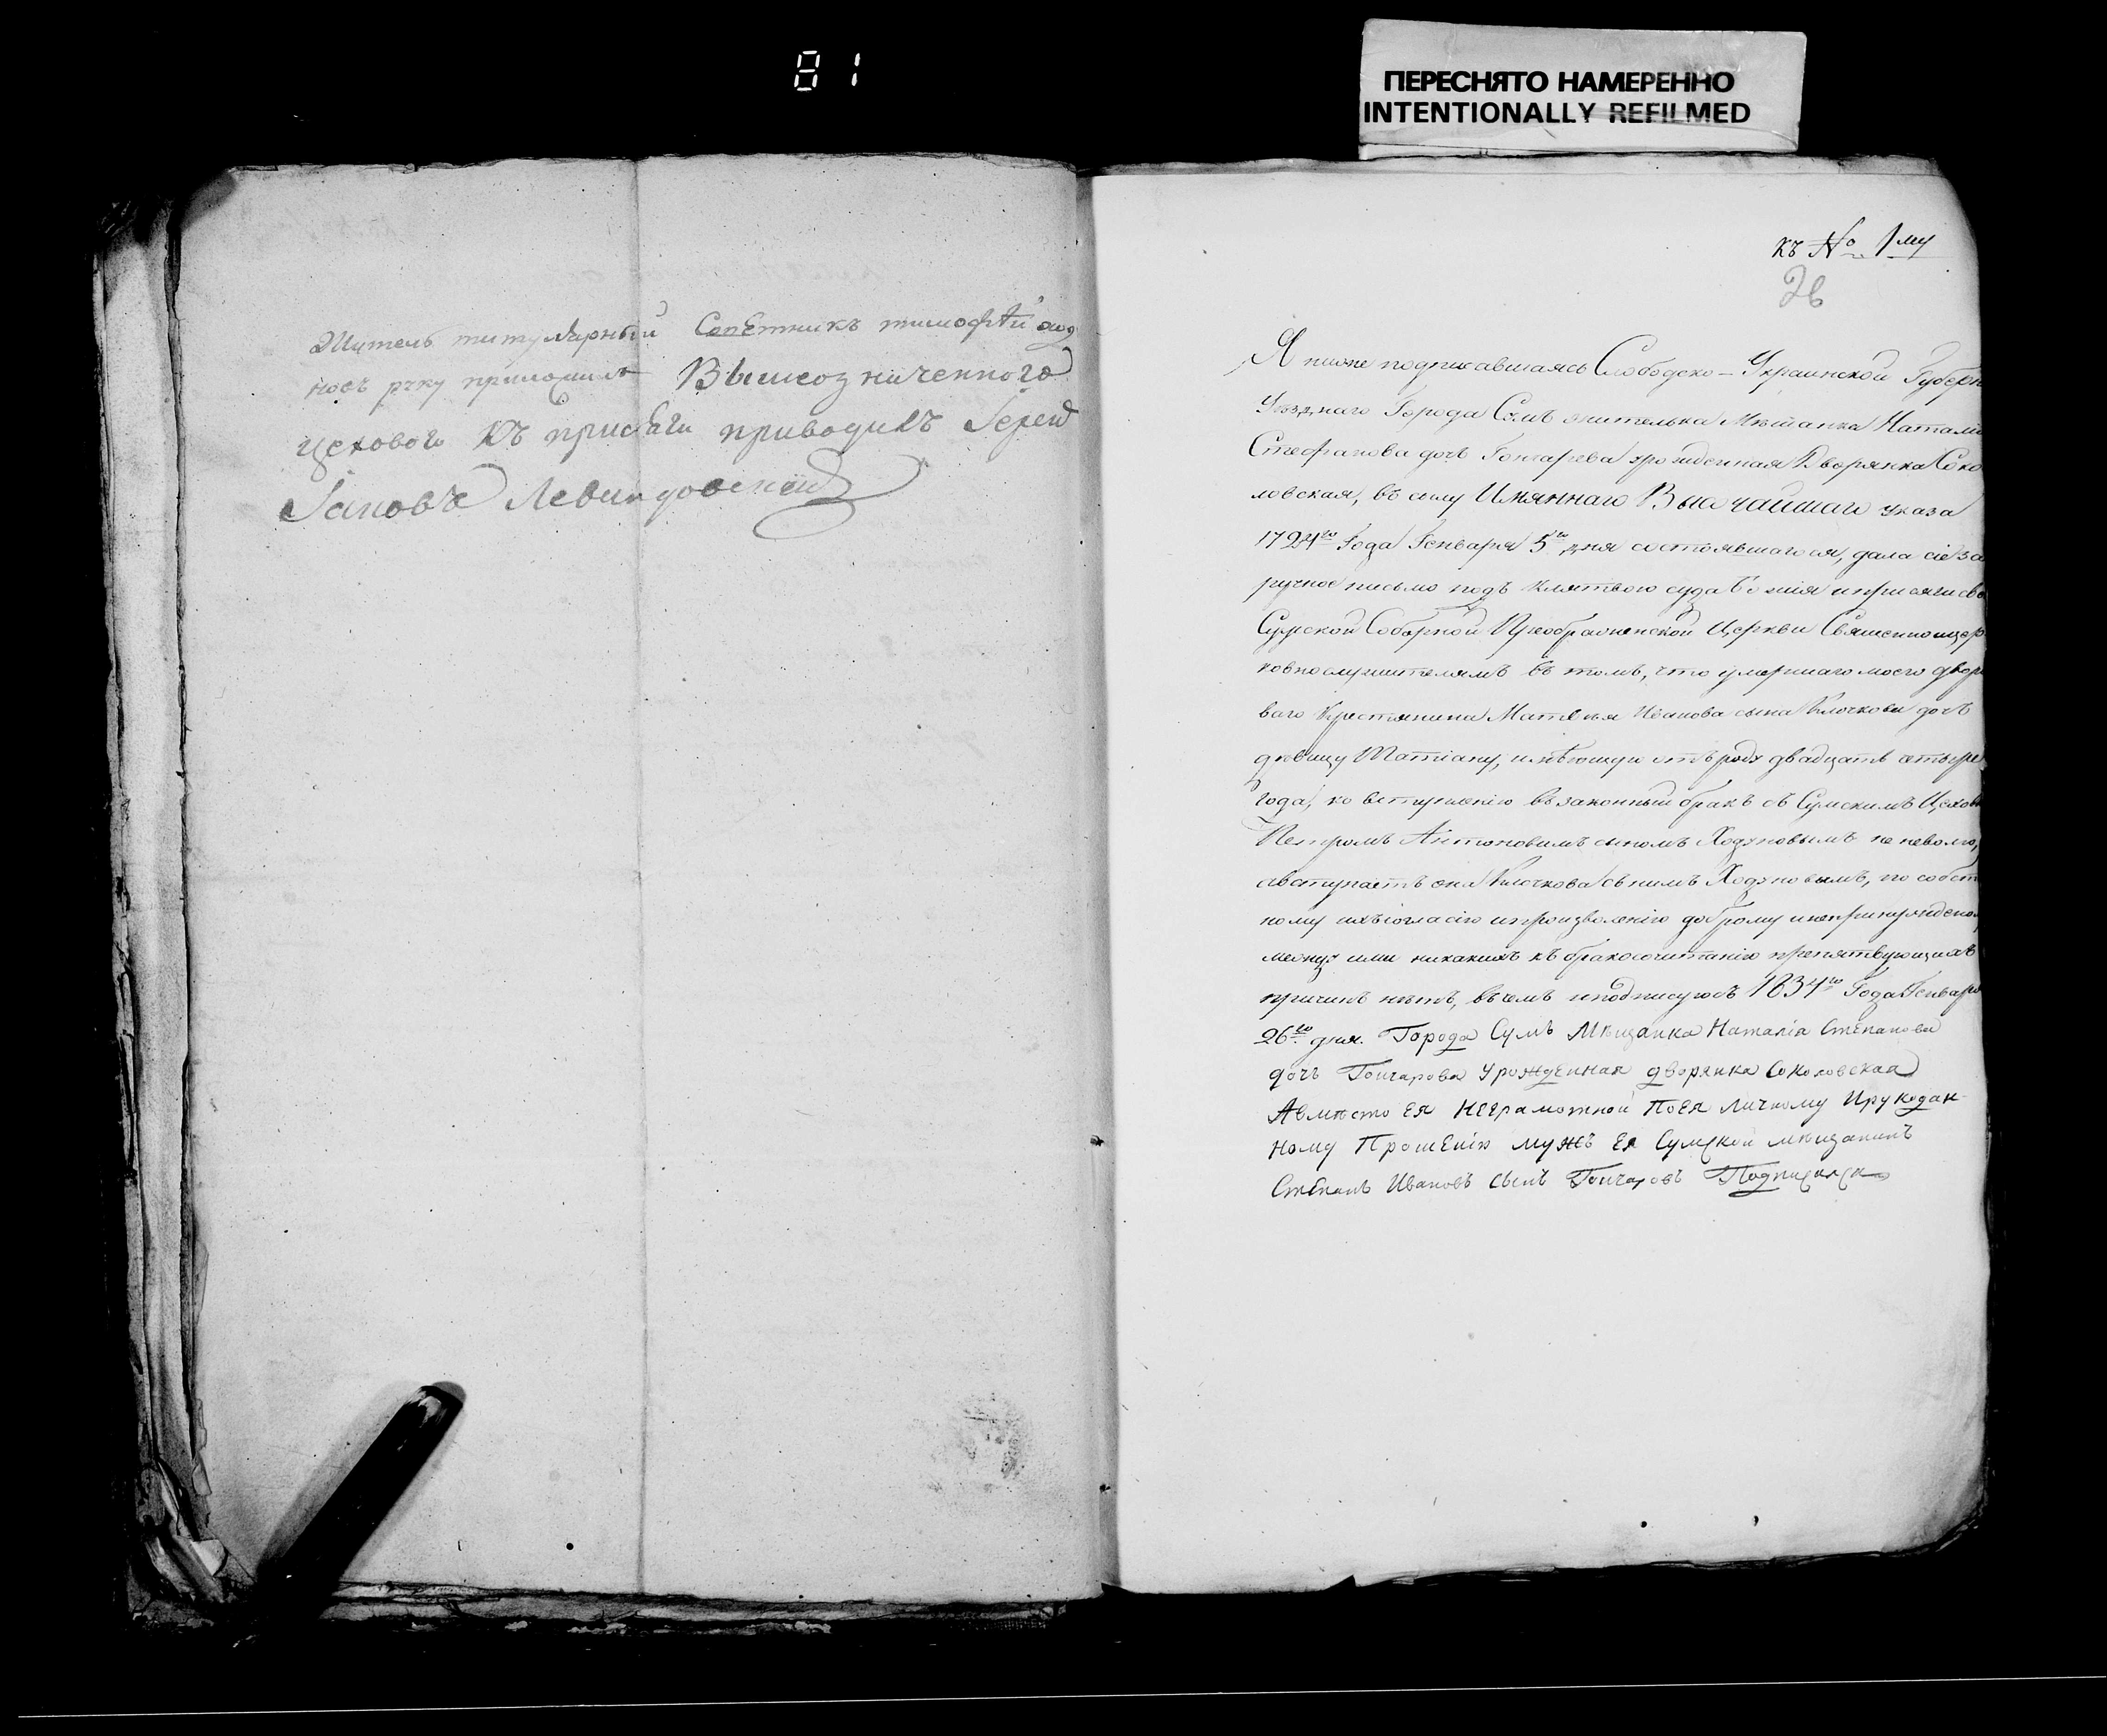 81
ПЕРЕСНЯТО НАМЕРЕННО
INTENTIONALLY REFILMED
Житель титулярный Совѣтникъ тимофѣй
носъ руку приложилъ Вышеозначенного
цехового къ присяги приводилъ Іерей
Іаковъ Левандовскій
къ № 1му
26
Я ниже подписавшаясь Слободско-Украинской Губерн
Уѣзднаго Города Сумъ жителька Мѣщанка Наталі
Стефанова дочь Гончарева урожденная Дворянка Соко
ловская, въ силу Имяннаго Высочайшаго указа
1724го Года Генваря 5го дня состоявшагося, дала сіе за
ручное письмо подъ клятвою суда Божія и присяги сво
Сумской Соборной Преображенской Церкви Священноцер
ковнослужителямъ въ томъ, что умершаго моего двор
ваго Крестянина Матвѣя Иванова сына Клочкова дочь
дѣвицу Татіану, имѣющую отъ роду двадцать четыре
года, ко вступленію въ законный бракъ съ Сумскимъ Цехов
Петромъ Антоновимъ сыномъ Ходуновымъ не неволю,
а вступаетъ она Клочкова съ нимъ Ходуновымъ, по собст
ному ихъ согласію и произволенію доброму и непринужденно
между ими никакихъ къ бракосочитанію препятвующихъ
причинъ нѣтъ, въ чемъ и подписуюсь 1834го Года Генваря
26го дня. Города Сумъ Мѣщанка Наталія Степанова
дочь Гончарова Урожденная дворянка Соколовская
Авмѣсто Ея Неграмотной По Ея Личному Ирукодан-
ному Прошенію мужъ Ея Сумской мѣщанинъ
Степанъ Ивановъ сынъ Гончаровъ Подписался